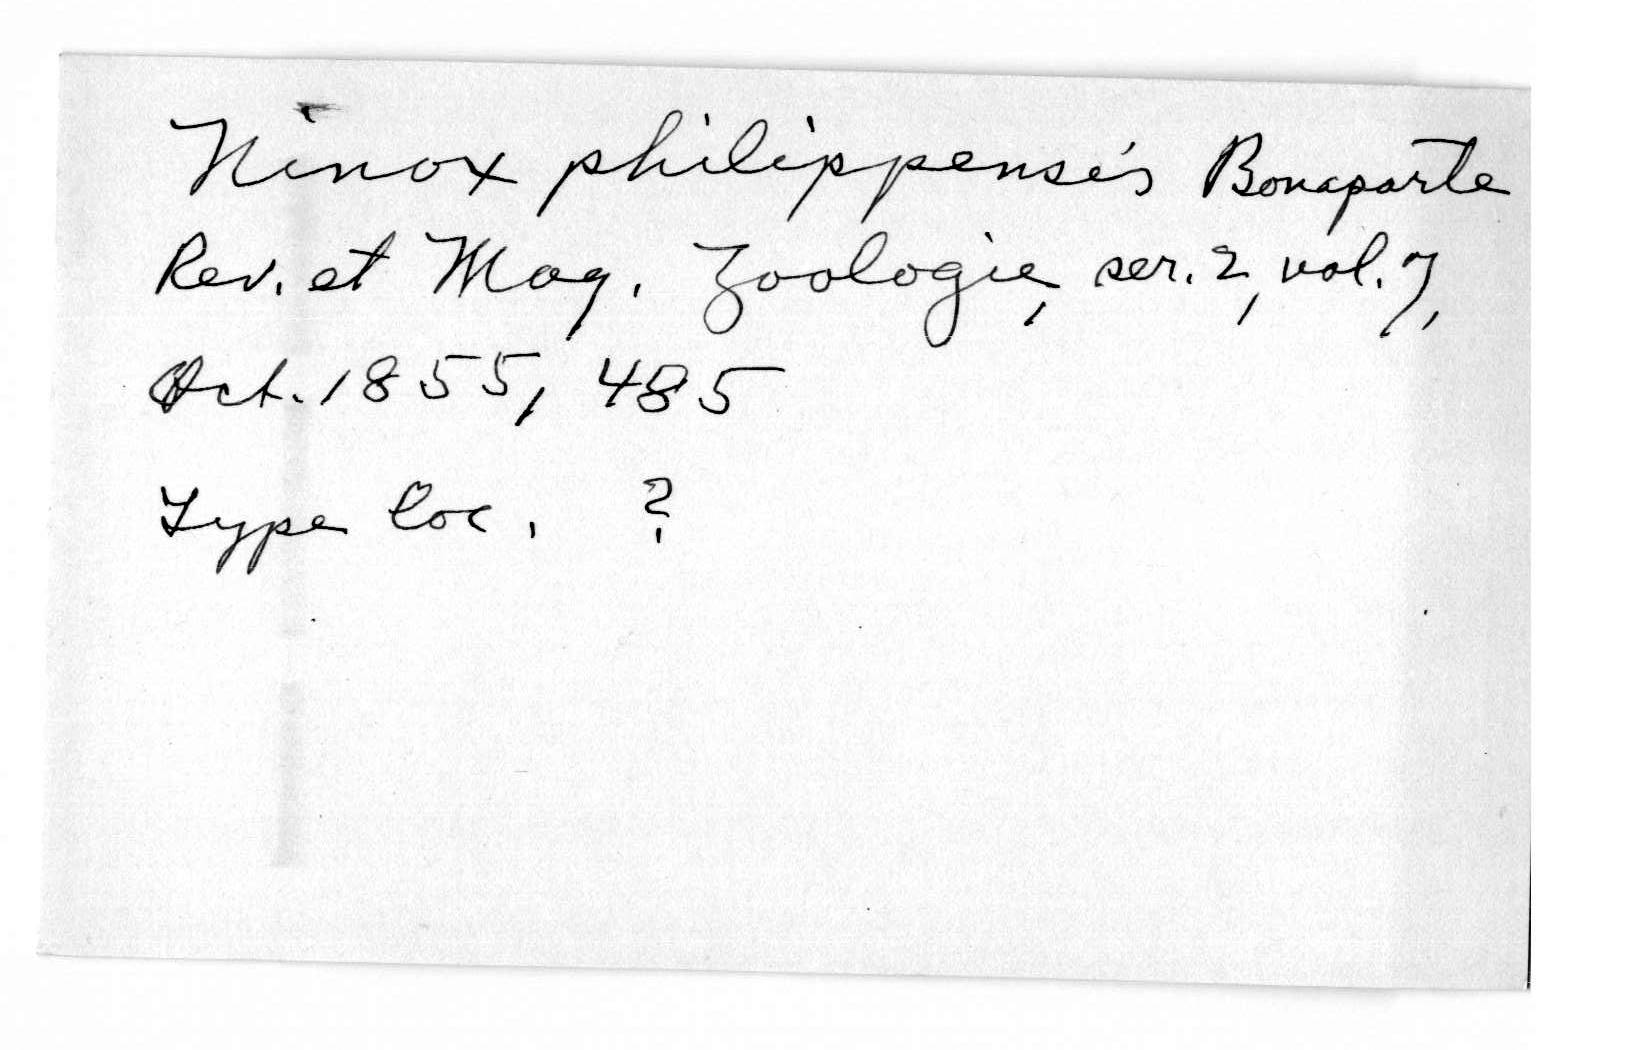 Ninox philippensis Bonaparte
Rev. et Mag. Zoologie, ser. 2, vol. 7,
Oct. 1855, 485
Type loc. ?